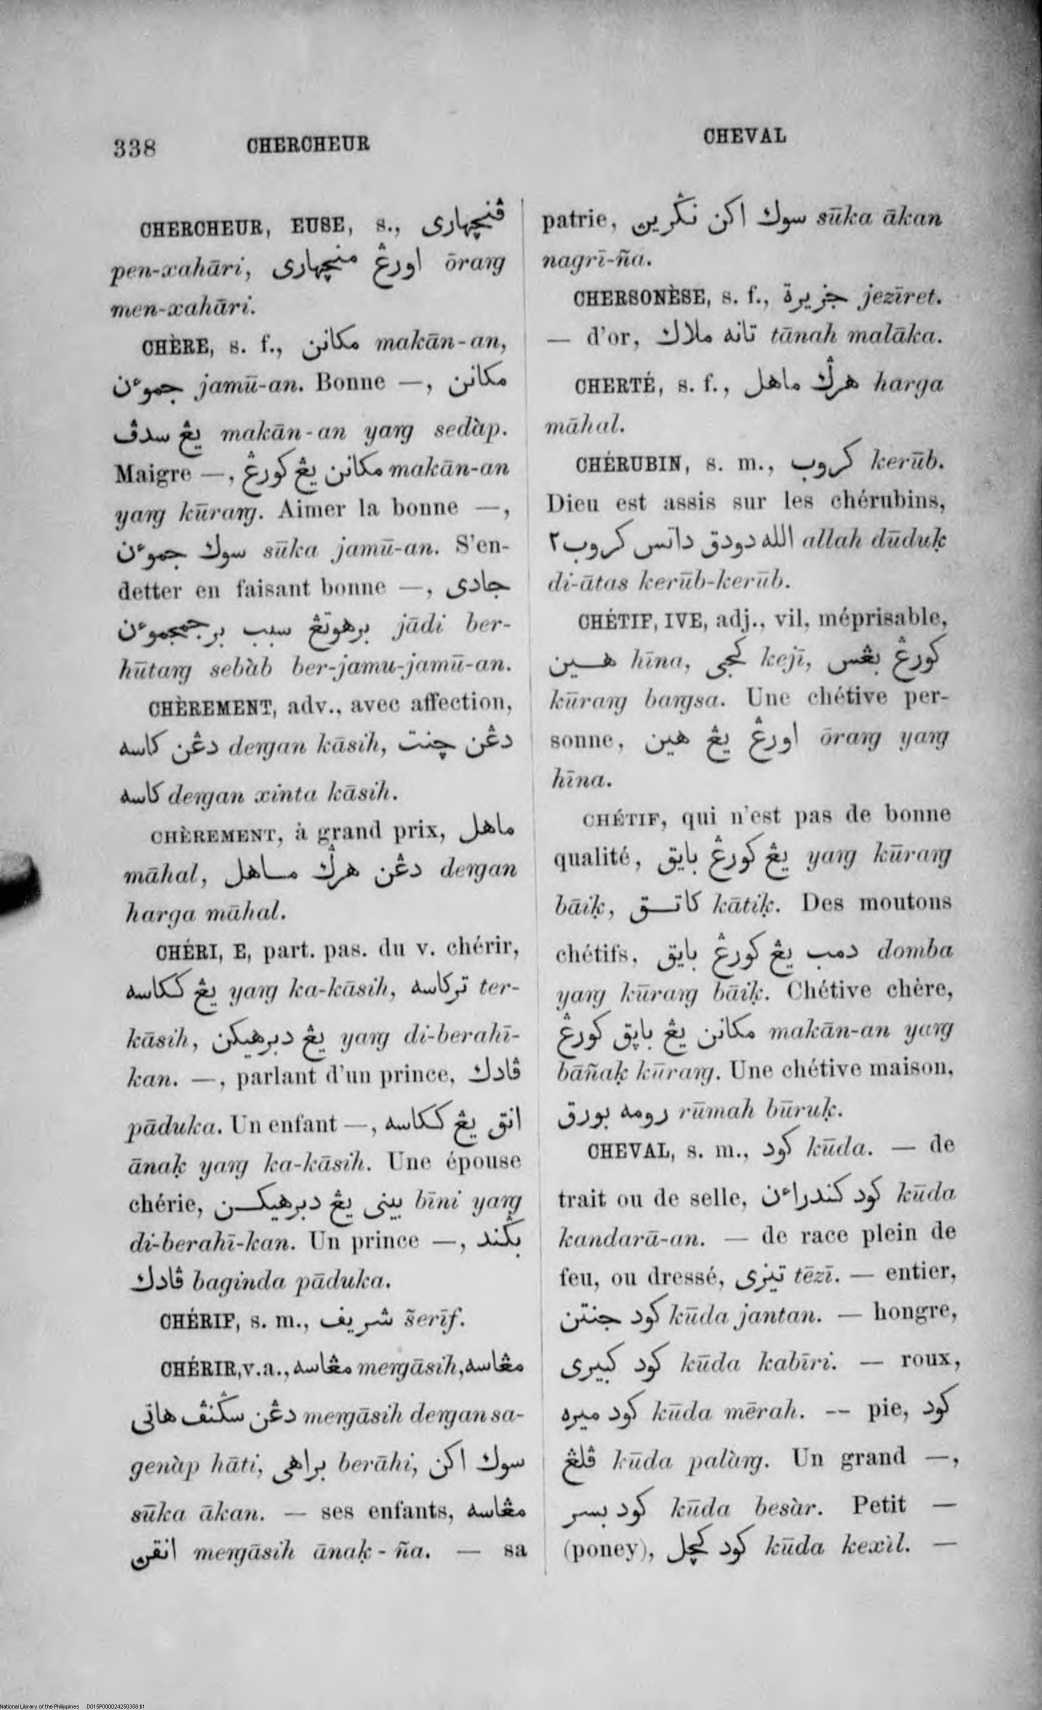 338 CHERCHEUR
CHEVAL
CHERCHEUR, EUSE, s., ڤنچهاري
pen-xahāri, اورڠ منچهاري ōraŋ
men-xahāri.
CHÈRE, s. f., مكانن makān-an,
جموءن jamū-an. Bonne —, مكانن
يڠ سدڤ makān-an yaŋ sedàp.
Maigre —, مكانن يڠ كورڠ makān-an
yaŋ kūraŋ. Aimer la bonne —,
سوك جموءن sūka jamū-an. S'en-
detter en faisant bonne —, جادي
برهوتڠ سبب برجمجموءن jādi ber-
hūtaŋ sebàb ber-jamu-jamū-an.
CHÈREMENT, adv., avec affection,
دڠن كاسه deŋan kāsih, دڠن چنت
كاسه deŋan xinta kāsih.
CHÈREMENT, à grand prix, ماهل
māhal, دڠن هرݢ ماهل deŋan
harga māhal.
CHÉRI, E, part. pas. du v. chérir,
يڠ ككاسه yaŋ ka-kāsih, تركاسه ter-
kāsih, يڠ دبرهيكن yaŋ di-berahī-
kan. —, parlant d'un prince, ڤادك
pāduka. Un enfant —, انق يڠ ككاسه
ānaḳ yaŋ ka-kāsih. Une épouse
chérie, بيني يڠ دبرهيكن bīni yaŋ
di-berahī-kan. Un prince —, بݢند
ڤادك baginda pāduka.
CHÉRIF, s. m., شريف s̃erīf.
CHÉRIR, v.a., مڠاسه meŋāsih, مڠاسه
دڠن سݢنڤ هاتي meŋāsih deŋan sa-
genàp hāti, براهي berāhi, سوك اكن
sūka ākan. — ses enfants, مڠاسه
انقن meŋāsih ānaḳ-ña. — sa
patrie, سوك اكن نݢرين sūka ākan
nagrī-ña.
CHERSONÈSE, s. f., جزيرة jezīret.
— d'or, تانه ملاك tānah malāka.
CHERTÉ, s. f., هرݢ ماهل harga
māhal.
CHÉRUBIN, s. m., كروب kerūb.
Dieu est assis sur les chérubins,
الله دودق داتس كروب٢ allah dūduḳ
di-ātas kerūb-kerūb.
CHÉTIF, IVE, adj., vil, méprisable,
هين hīna, كجي kejī, كورڠ بڠس
kūraŋ baŋsa. Une chétive per-
sonne, اورڠ يڠ هين ōraŋ yaŋ
hīna.
CHÉTIF, qui n'est pas de bonne
qualité, يڠ كورڠ بايق yaŋ kūraŋ
bāiḳ, كاتق kātiḳ. Des moutons
chétifs, دمب يڠ كورڠ بايق domba
yaŋ kūraŋ bāiḳ. Chétive chère,
مكانن يڠ باپق كورڠ makān-an yaŋ
bāñaḳ kūraŋ. Une chétive maison,
رومه بورق rūmah būruḳ.
CHEVAL, s. m., كود kūda. — de
trait ou de selle, كود كندراءن kūda
kandarā-an. — de race plein de
feu, ou dressé, تيزي tēzī. — entier,
كود جنتن kūda jantan. — hongre,
كود كبيري kūda kabīri. — roux,
كود ميره kūda mērah. -- pie, كود
ڤلڠ kūda palàŋ. Un grand —,
كود بسر kūda besàr. Petit —
(poney), كود كچل kūda kexìl. —
National Library of the Philippines